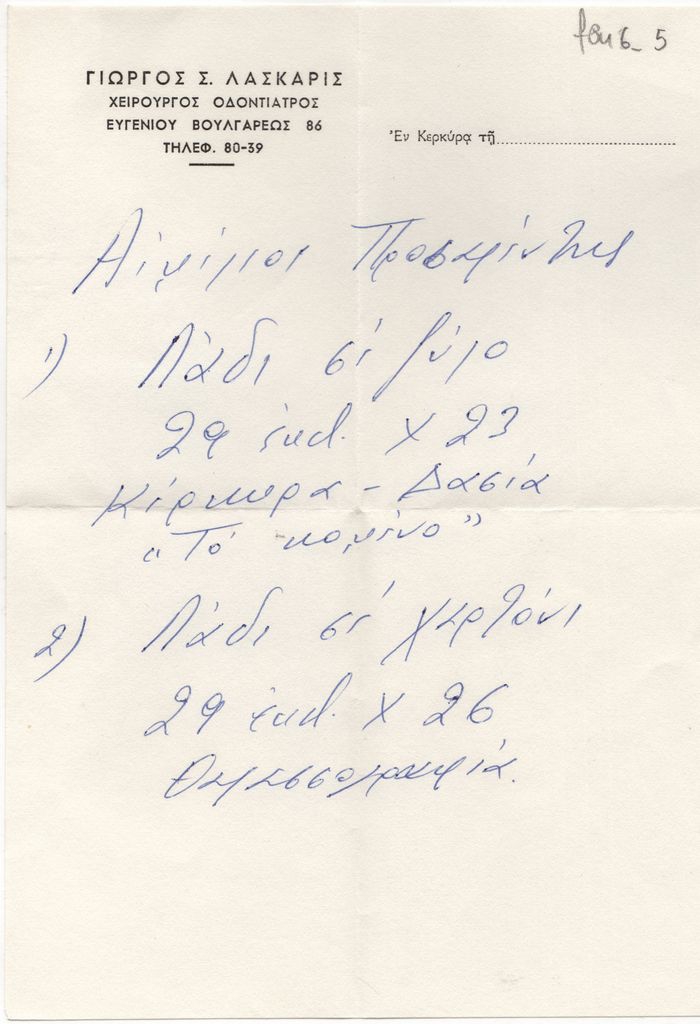 5
ΓΙΩΡΓΟΣ Σ. ΛΑΣΚΑΡΙΣ
ΧΕΙΡΟΥΡΓΟΣ ΟΔΟΝΤΙΑΤΡΟΣ
ΕΥΓΕΝΙΟΥ ΒΟΥΛΓΑΡΕΩΣ 86
ΤΗΛΕΦ. 80-39
Ἐν Κερκύρᾳ τῇ
Αἰμίλιος Προσαλέντης
1) Λάδι σέ ξύλο
29 ἑκατ. Χ 23
Κέρκυρα - Δασιά
"Τό καμίνο"
2) Λάδι σέ χαρτόνι
29 ἑκατ. Χ 26
Θαλασσογραφία.